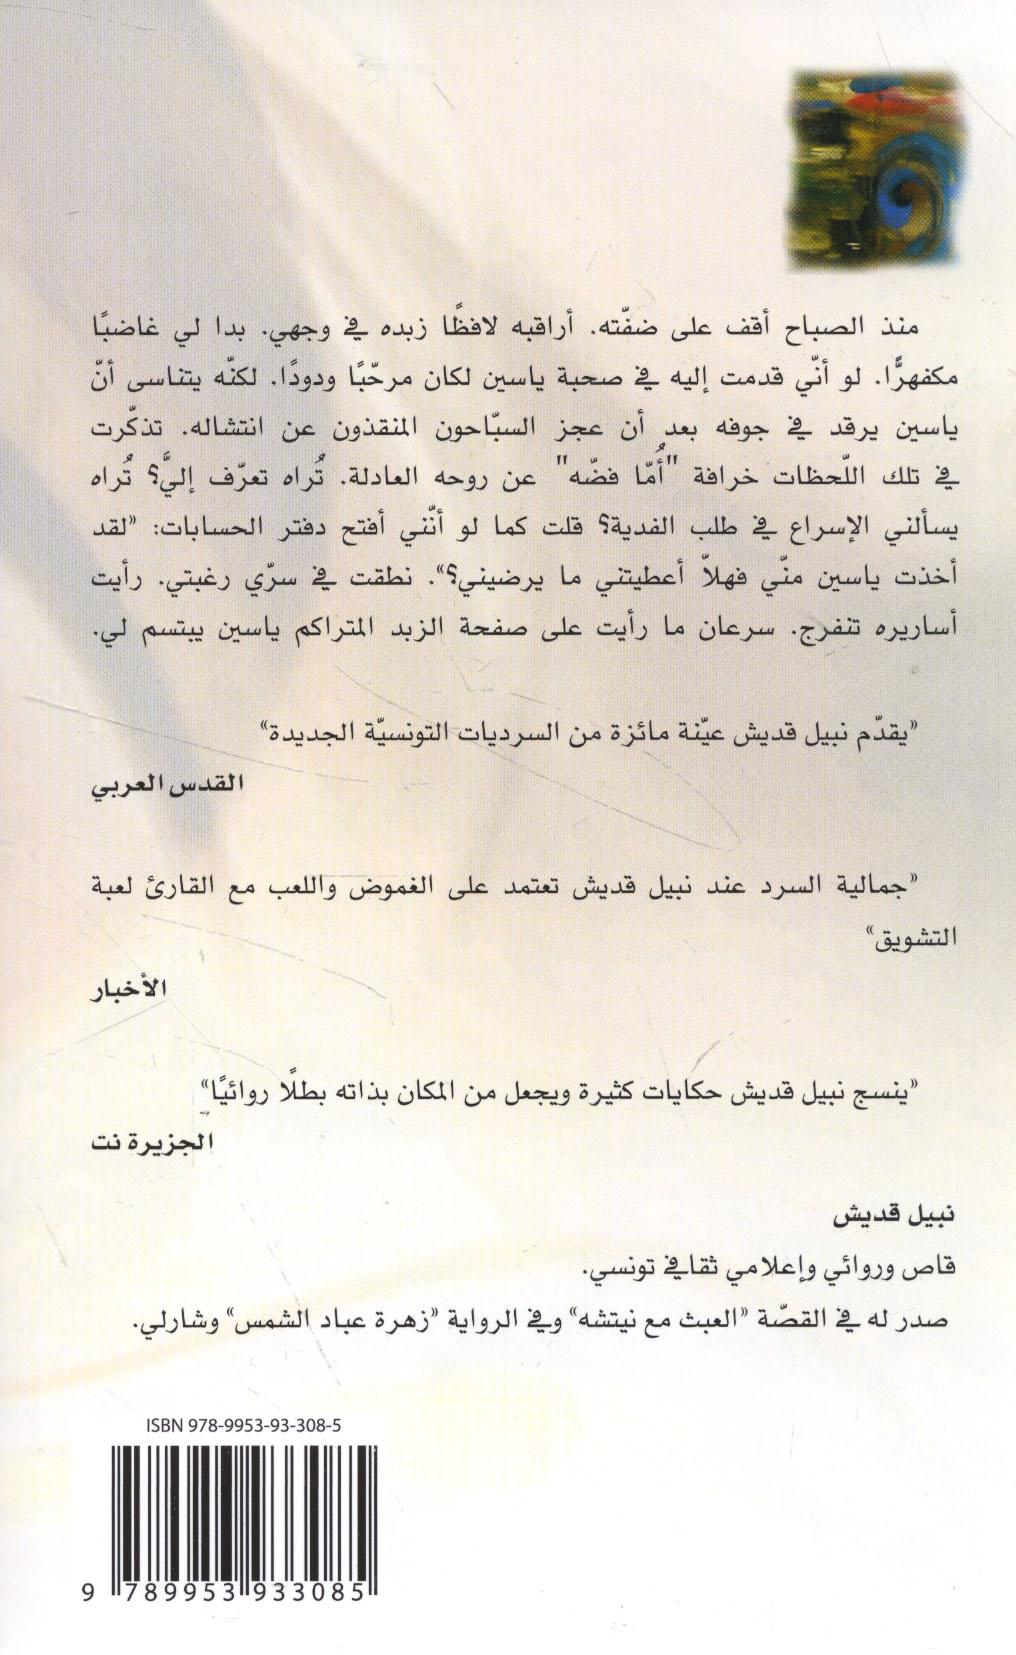 منذ الصباح أقف على ضفّته. أراقبه لافظًا زبده في وجهي. بدا لي غاضبًا
مكفهرًّا. لو أنّي قدمت إليه في صحبة ياسين لكان مرحّبًا ودودًا. لكنّه يتناسى أنّ
ياسين يرقد في جوفه بعد أن عجز السبّاحون المنقذون عن انتشاله. تذكّرت
في تلك اللّحظات خرافة "أُمّا فضّه" عن روحه العادلة. تُراه تعرّف إليَّ؟ تُراه
يسألني الإسراع في طلب الفدية؟ قلت كما لو أنّني أفتح دفتر الحسابات: «لقد
أخذت ياسين منّي فهلاّ أعطيتني ما يرضيني؟». نطقت في سرّي رغبتي. رأيت
أساريره تنفرج. سرعان ما رأيت على صفحة الزبد المتراكم ياسين يبتسم لي.
«يقدّم نبيل قديش عيّنة مائزة من السرديات التونسيّة الجديدة»
القدس العربي
«جمالية السرد عند نبيل قديش تعتمد على الغموض واللعب مع القارئ لعبة
التشويق»
الأخبار
«ينسج نبيل قديش حكايات كثيرة ويجعل من المكان بذاته بطلًا روائيًا»
الجزيرة نت
نبيل قديش
قاص وروائي وإعلامي ثقافي تونسي.
صدر له في القصّة «العبث مع نيتشه» وفي الرواية «زهرة عباد الشمس» وشارلي.
ISBN 978-9953-93-308-5
9 789953 933085